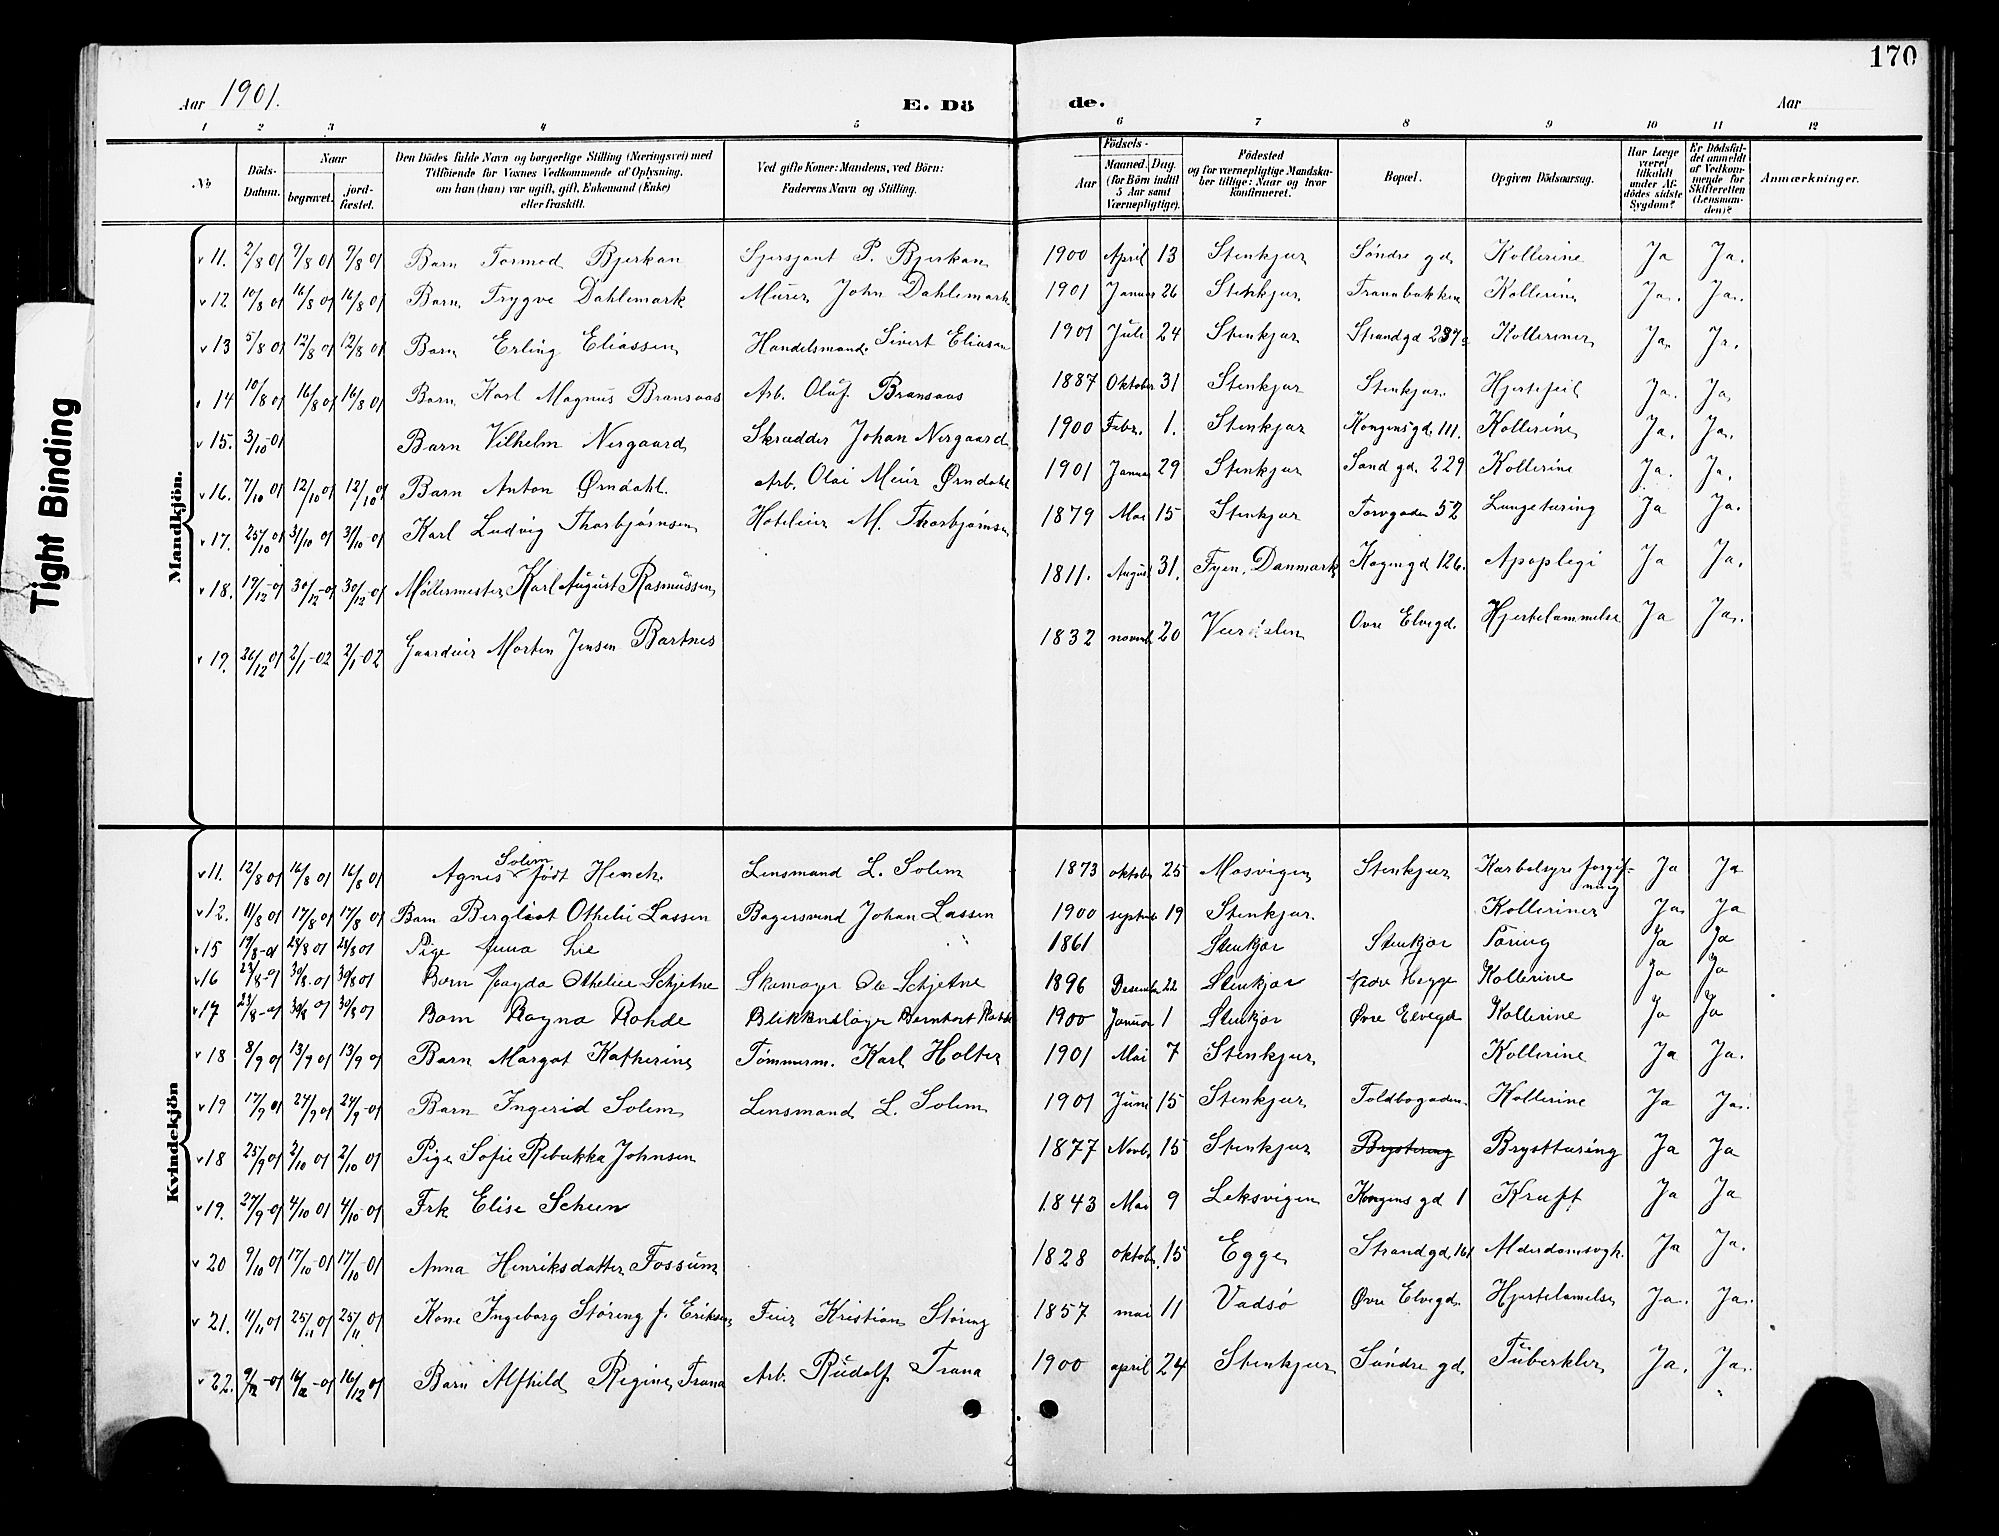 170
Aar 1901. E. Dö de. Aar
1 2 3 4 5 6 7 8 9 10 11 12
No Döds-Datum. Naar begravet. jord-fæstet. Den Dödes fulde Navn og borgerlige Stilling (Næringsvei) med Tilföiende for Voxnes Vedkommende af Oplysning, om han (hun) var ugift, gift, Enkemand (Enke) eller fraskilt. Ved gifte Koner: Mandens, ved Börn: Faderens Navn og Stilling. Födsels- Aar Maaned. Dag. (for Börn indtil 5 Aar samt Værnepligtige). Födested og for værnepligtige Mandskaber tillige: Naar og hvor konfirmeret. Bopæl. Opgiven Dödsaarsag. Har Læge været tilkaldt under Afdödes sidste Sygdom? Er Dödsfaldet anmeldt af Vedkommende for Skifteretten (Lensmanden)? Anmærkninger.
Tight Binding
Mandkjön.
11. 2/8 01 9/8 01 9/8 01 Barn Tormod Bjerkan Sersjant P. Bjerkan 1900 April 13 Stenkjær Søndre gd. Kollerine Ja Ja.
12 10/8 01 16/8 01 16/8 01 Barn Trygve Dahlemark Murer John Dahlemark 1901 Januar 26 Stenkjær Tranabakken Kollerine Ja. Ja.
13 5/8 01 12/8 01 12/8 01 Barn Erling Eliassen Handelsmand Sivert Eliasen 1901 Juli 24 Stenkjær Strandgd 237 Kollerinen Ja. Ja.
14 10/8 01 16/8 01 16/8 01 Barn Karl Magnus Bransaas Arb. Oluf Bransaas 1887 Oktober 31 Stenkjær Stenkjær. Hjertefeil Ja. Ja,
15. 3/10-01 Barn Vilhelm Nergaard Skrædder Johan Nergaard 1900 Febr. 1. Stenkjær Kongensgd. 111. Kollerine Ja. Ja.
16. 7/10 01 12/10 01 12/10 01 Barn Anton Ørndahl. Arb. Olai Meier Ørndahl 1901 Januar 29 Stenkjær Sand gd. 229 Kollerine Ja. Ja.
17. 25/10 01 31/10 01 31/10-01 Karl Ludvig Thorbjørnsen Hoteleier M. Thorbjørnsen 1879 Mai 15 Stenkjær Torvgaden 52 Lungetæring Ja Ja.
18. 17/12-01 30/12-01 30/12-01 Møllermester Karl August Rasmussen 1811. August 31. Fyen, Danmark Kogengd 126. Apoplegi Ja Ja.
19. 26/12 01 2/1-02 2/1-02 Gaardeier Morten Jensen Bartnes 1832 novemb. 20 Værdalen Øvre Elvegd. Hjertelammelse Ja Ja.
Kvindekjön
11. 12/8 01 16/8 01 16/8 01 Agnes Solem født Hench. Lensmand L. Solem 1873 oktobr 25 Mosvigen Stenkjær Karbolsyre forgif-ning Ja Ja
12. 11/8 01 17/8 01 17/8 01 Barn Bergliot Othelie Lassen Bagersvend Johan Lassen 1900 septmb 19 Stenkjær. Kolleriner Ja. Ja
15 19/8-01 28/8 01 28/8 01 Pige Anna Lie 1861 Stenkjær Stenkjær Tæring Ja Ja
16 23/8-01 30/8.01 30/8 01 Barn Magda Othelie Schjetne Skomager Ole Schjetne 1896 Desember 22 Stenkjær Nedre Hegge Kollerine Ja Ja
17 23/8-01 30/8 01 30/8 01 Barn Ragna Rohde Blikkenslager Bernhart Rohde 1900 Januar 1 Stenkjær Øvre Elvegd Kollerine Ja Ja
18 8/9 01 13/9 01 13/9 01 Barn Margot Katherine Tømmerm. Karl Holter 1901 Mai 7 Stenkjær Kollerine Ja Ja.
19 17/9 01 24/9 01 24/9-01 Barn Ingerid Solem Lensmand L. Solem 1901 Juni 15 Stenkjær Toldbogaden. Kollerine Ja Ja.
18 25/9 01 2/10 01 2/10 01 Pige Sofie Rebekka Johnsen 1877 Novb. 15 Stenkjær Brysttæring Brysttæring Ja Ja
19. 27/9-01 4/10 01 4/10-01 Frk Elise Scheen 1843 Mai 9 Leksvigen Kongens gd 1 Kræft Ja Ja
20 9/10 01 17/10-01 17/10-01 Anna Henriksdatter Fossum 1828 oktobr. 15 Egge Strand gd. 161 Alderdomssvgh. Ja Ja.
21. 11/11 01 25/11 01 25/11 01 Kone Ingeborg Støring f. Eriksen Feier Kristian Støring 1857 mai 11 Vadsø Øvre Elvegd. Hjertelamelse Ja. Ja.
22. 9/12-01 16/12-01 16/12 01 Barn Alfhild Regine Trana Arb. Rudolf Trana 1900 april 24 Stenkjær Søndre gd. Tuberkler Ja. Ja.